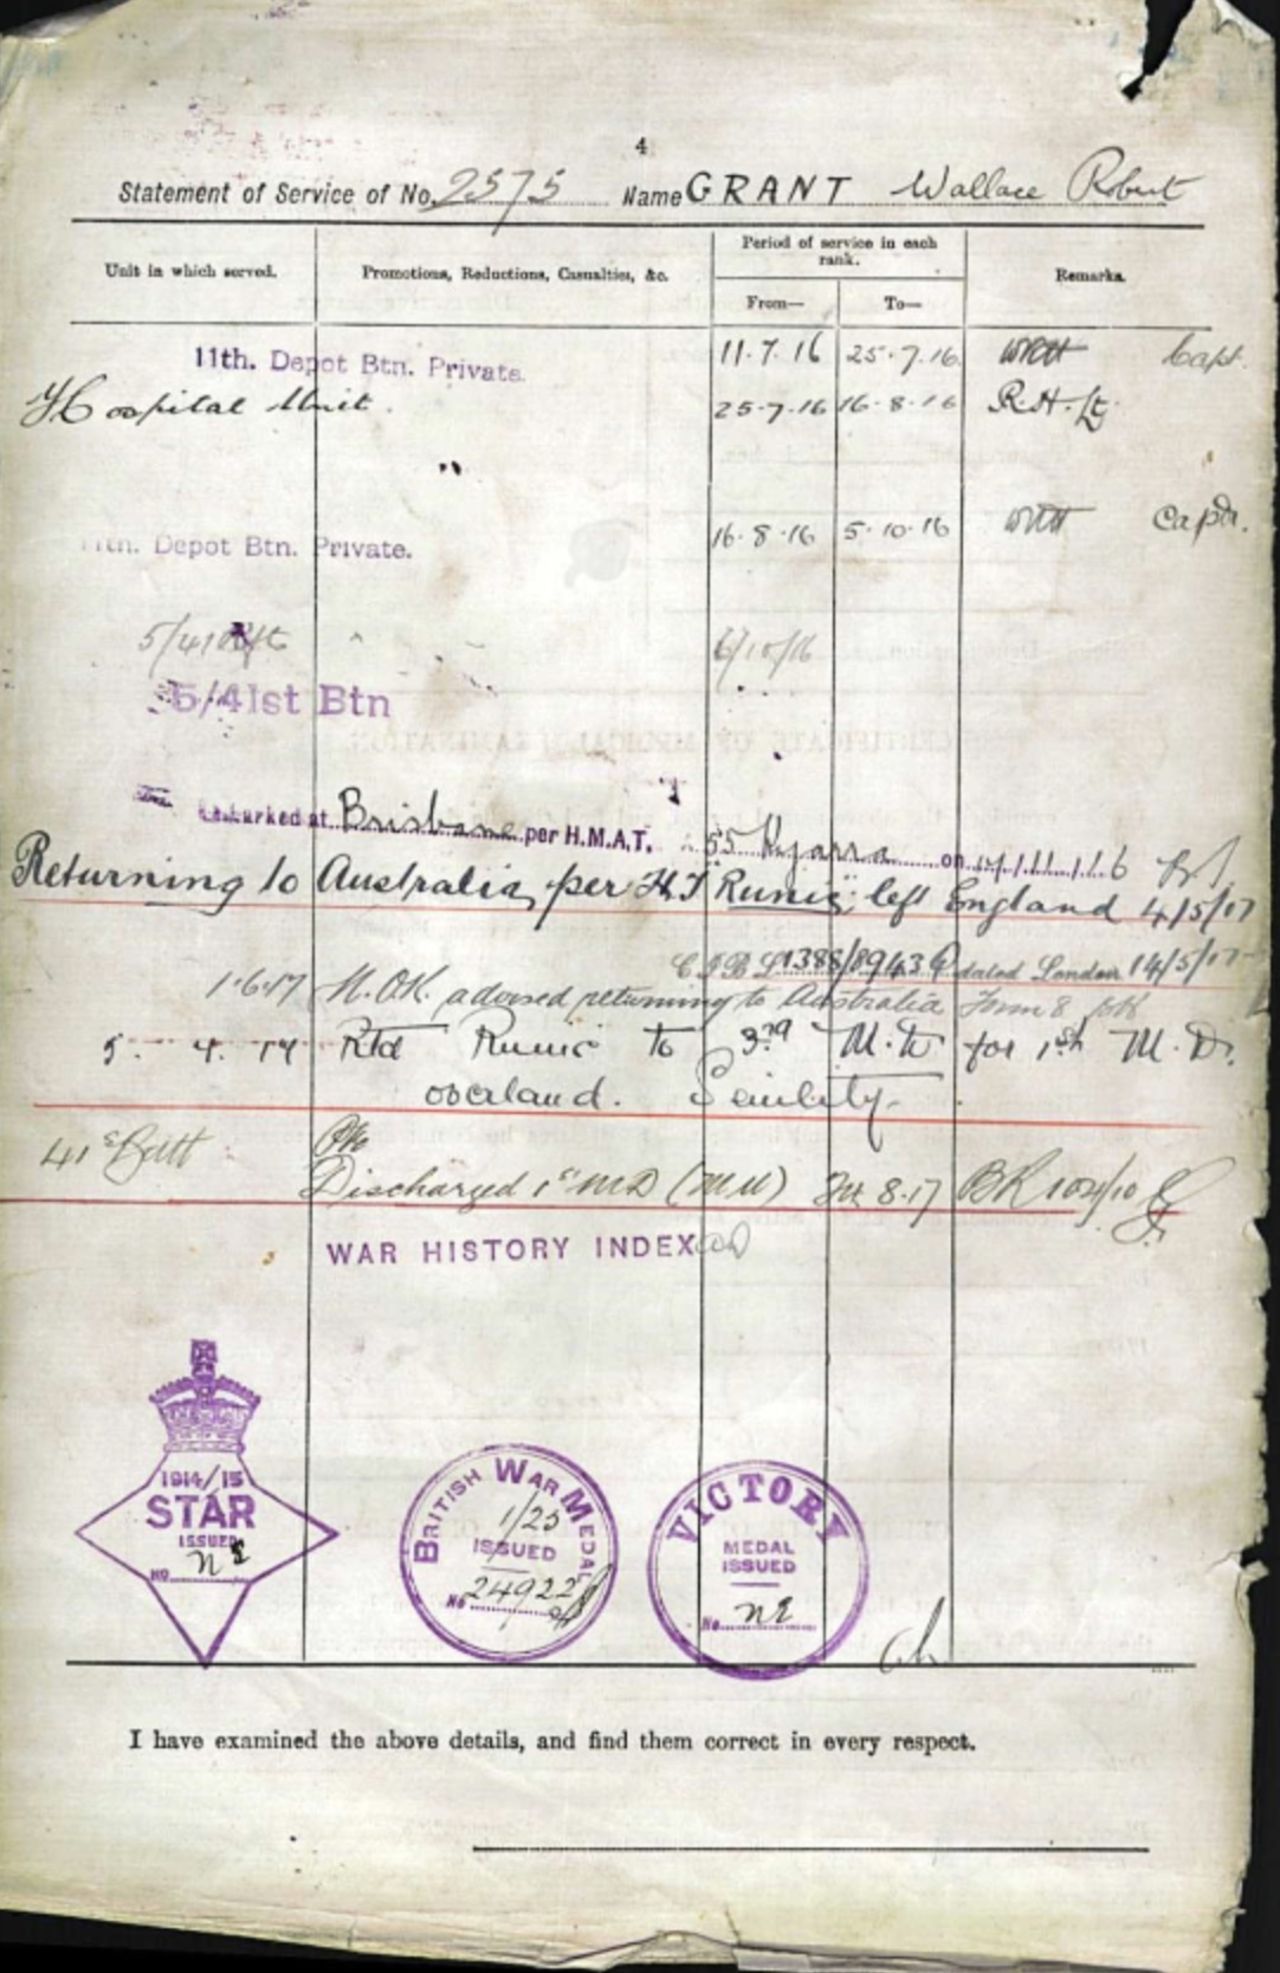 4
Statement of Service of No. 2575 Name GRANT Wallace Robert
Unit in which served.
Promotions, Reductions, Casualties, &c.
Period of service in each rank.
From—
To—
Remarks.
11th. Depot Btn. Private. 11.7.16 25.7.16 Capt.
Hospital Unit. 25.7.16 16.8.16 R.H. Lt
11th. Depot Btn. Private. 16.8.16 5.10.16 Capt.
5/41 6/10/16
5/41st Btn
Embarked at Brisbane per H.M.A.T. A 55 Kyarra on 17/11/16
Returning to Australia per H.T "Runic" left England 4/5/17
1388/8943 dated London 14/5/17
1.6.17 N.O.K. advised returning to Australia Form 8
Rtd Runic to 3rd M.D for 1st M.D.
overland. Senility.
41st Batt
Discharged 1st MD (MU) 8.17 BR
WAR HISTORY INDEX
1914/15
STAR
ISSUED
NO NE
BRITISH WAR MEDAL
1/25
ISSUED
No 24922
VICTORY
MEDAL
ISSUED
No. NE
I have examined the above details, and find them correct in every respect.